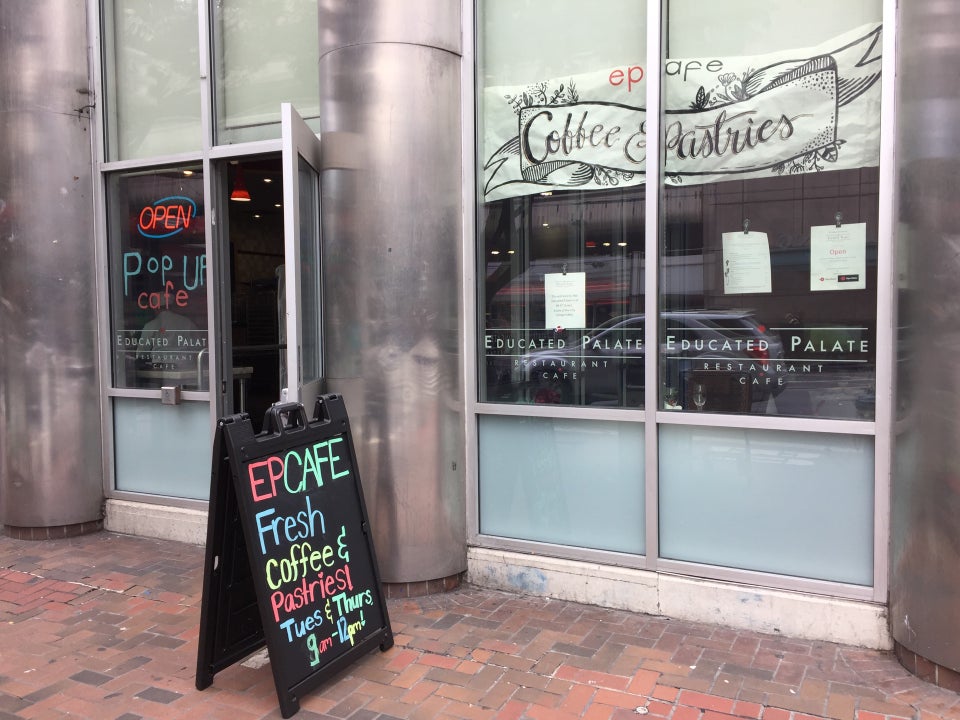 ep cafe
Coffee & Pastries
OPEN
Pop UP
cafe
EDUCATED PALATE
RESTAURANT
CAFE
Open
EDUCATED PALATE
RESTAURANT
CAFE
EDUCATED PALATE
RESTAURANT
CAFE
EPCAFE
Fresh
Coffee &
Pastries!
Tues & Thurs,
9am-12pm!